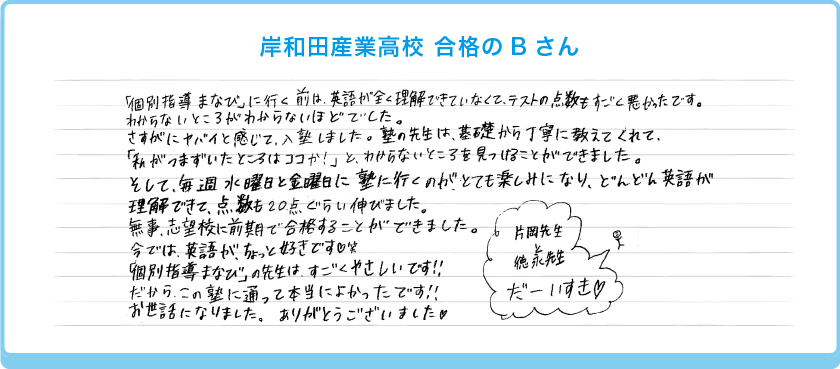 岸和田産業高校 合格の B さん
「個別指導 まなび」に行く前は、英語が全く理解できていなくて、テストの点数もすごく悪かったです。
わからないところがわからないほどでした。
さすがにヤバイと感じて、入塾しました。塾の先生は、基礎から丁寧に教えてくれて、
「私がつまずいたところはココか!」と、わからないところを見つけることができました。
そして、毎週 水曜日と金曜日に 塾に行くのが、とても楽しみになり、どんどん英語が
理解できて、点数も20点ぐらい伸びました。
無事、志望校に前期で合格することができました。
今では、英語が、ちょっと好きです♡
「個別指導 まなび」の先生は、すごくやさしいです!!
だから、この塾に通って本当によかったです!!
お世話になりました。ありがとうございました♡
片岡先生
と
徳永先生
だーいすき♡